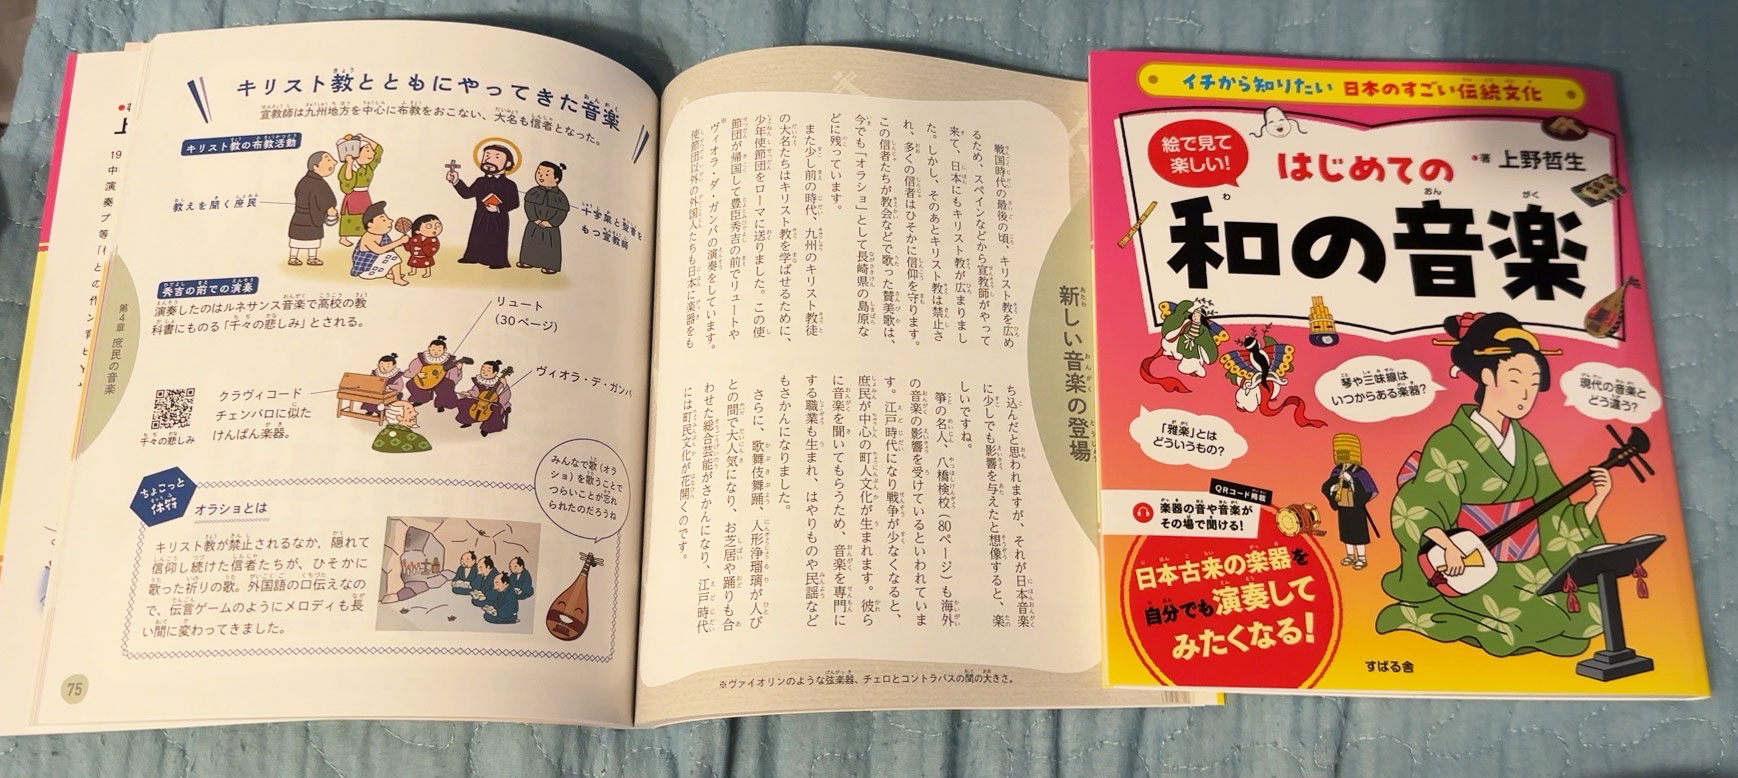 キリスト教とともにやってきた音楽
宣教師は九州地方を中心に布教をおこない、大名も信者となった。
キリスト教の布教活動
教えを聞く庶民
十字架と聖書を
もつ宣教師
秀吉の前での演奏
演奏したのはルネサンス音楽で高校の教
科書にものる「千々の悲しみ」とされる。
リュート
(30ページ)
ヴィオラ・デ・ガンバ
クラヴィコード
チェンバロに似た
けんばん楽器。
千々の悲しみ
みんなで歌(オラ
ショ)を歌うことで
つらいことが忘れ
られたのだろうね
ちょこっと
休符
オラショとは
キリスト教が禁止されるなか、隠れて
信仰し続けた信者たちが、ひそかに
歌った祈りの歌。外国語の口伝えなの
で、伝言ゲームのようにメロディも長
い間に変わってきました。
第4章 庶民の音楽
75
新しい音楽の登場
戦国時代の最後の頃、キリスト教を広め
るため、スペインなどから宣教師がやって
来て、日本にもキリスト教が広まりまし
た。しかし、そのあとキリスト教は禁止さ
れ、多くの信者はひそかに信仰を守ります。
この信者たちが教会などで歌った賛美歌は、
今でも「オラショ」として長崎県の島原な
どに残っています。
また少し前の時代、九州のキリスト教徒
の大名たちはキリスト教を学ばせるために、
少年使節団をローマに送りました。この使
節団が帰国して豊臣秀吉の前でリュートや
ヴィオラ・ダ・ガンバの演奏をしています。
使節団以外の外国人たちも日本に楽器をも
ち込んだと思われますが、それが日本音楽
に少しでも影響を与えたと想像すると、楽
しいですね。
箏の名人、八橋検校(80ページ)も海外
の音楽の影響を受けているといわれていま
す。江戸時代になり戦争が少なくなると、
庶民が中心の町人文化が生まれます。彼ら
に音楽を聞いてもらうため、音楽を専門に
する職業も生まれ、はやりものや民謡など
もさかんになりました。
さらに、歌舞伎舞踊、人形浄瑠璃が人び
との間で大人気になり、お芝居や踊りも合
わせた総合芸能がさかんになり、江戸時代
には町民文化が花開くのです。
※ヴァイオリンのような弦楽器、チェロとコントラバスの間の大きさ。
イチから知りたい 日本のすごい伝統文化
絵で見て
楽しい!
はじめての
・著 上野哲生
和の音楽
琴や三味線は
いつからある楽器?
現代の音楽と
どう違う?
「雅楽」とは
どういうもの?
QRコード掲載
楽器の音や音楽が
その場で聞ける!
日本古来の楽器を
自分でも演奏して
みたくなる!
すばる舎